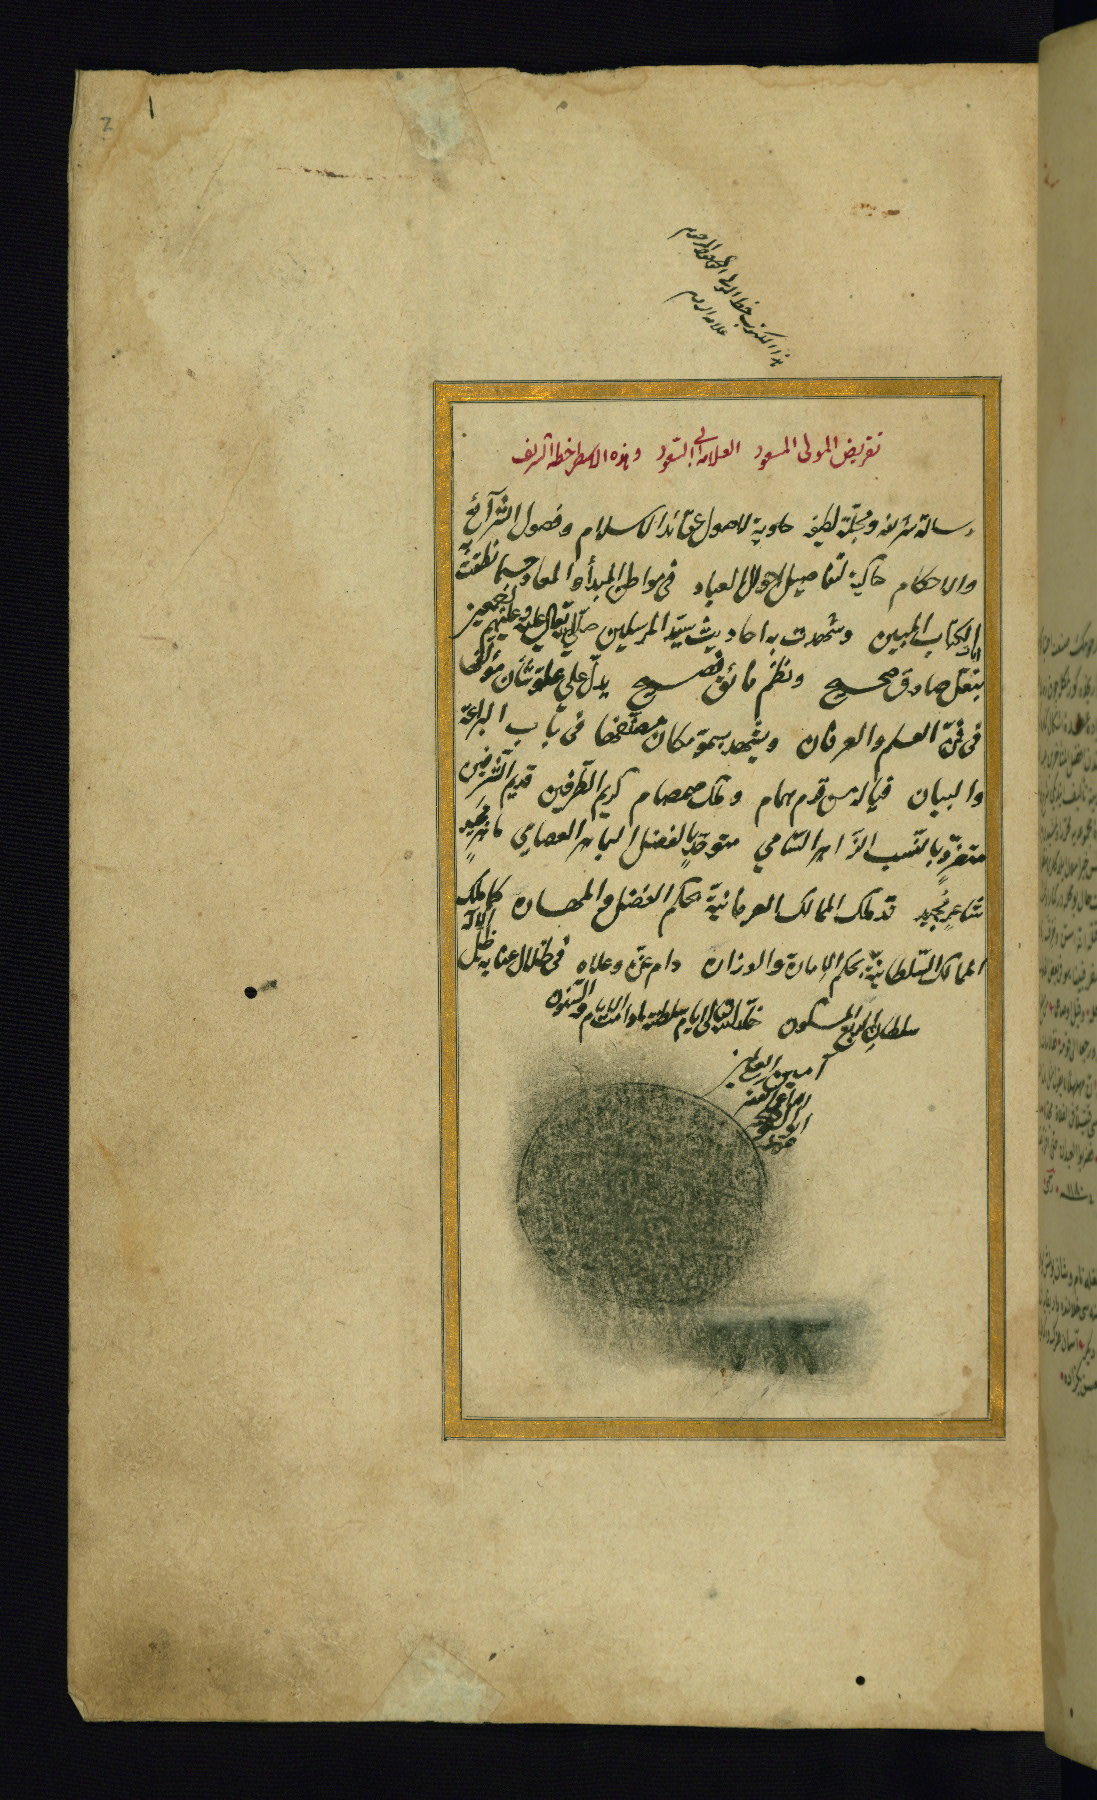 2
1
هذا المكتوب خط المولى المرحوم
علامة الروم
تقريض المولى المسعود العلامة ابى السعود وهذه الاسطر خطه الشريف
رسالة شريفة ومجلة لطيفة حاوية لاصول عقائد الاسلام وفصول الشرآئع
والاحكام حاكية لتفاصيل احوال العباد فى مواطن المبدأ والمعاد حسبما نطقت به
آيات الكتاب المبين وشهدت به احاديث سيد المرسلين صلى الله تعالى عليه وعليهم اجمعين
بنقل صادق صحيح ونظم فائق فصيح يدل على علو شأن مؤلفها
فى فن العلم والعرفان ويشهد بسمو مكان مصنفها فى باب البراعة
والبيان فياله من قرم همام وملك صمصام كريم الطرفين قديم الشرفين
متفرد بالنسب الزاهر السامي متوحد بالفضل الباهر العصامي ماهر مجيد
شاعر مجيد قد ملك الممالك العرفانية بحكم الفضل والمهارة كما ملك
الممالك السلطانية بحكم الامارة والوزارة دام عزه وعلاه فى ظلال عناية ظل الاله
سلطان الربع المسكون خلد الله تعالى ايام سلطنته مادامت الايام والسنون
آمين
الفقير
ابو السعود